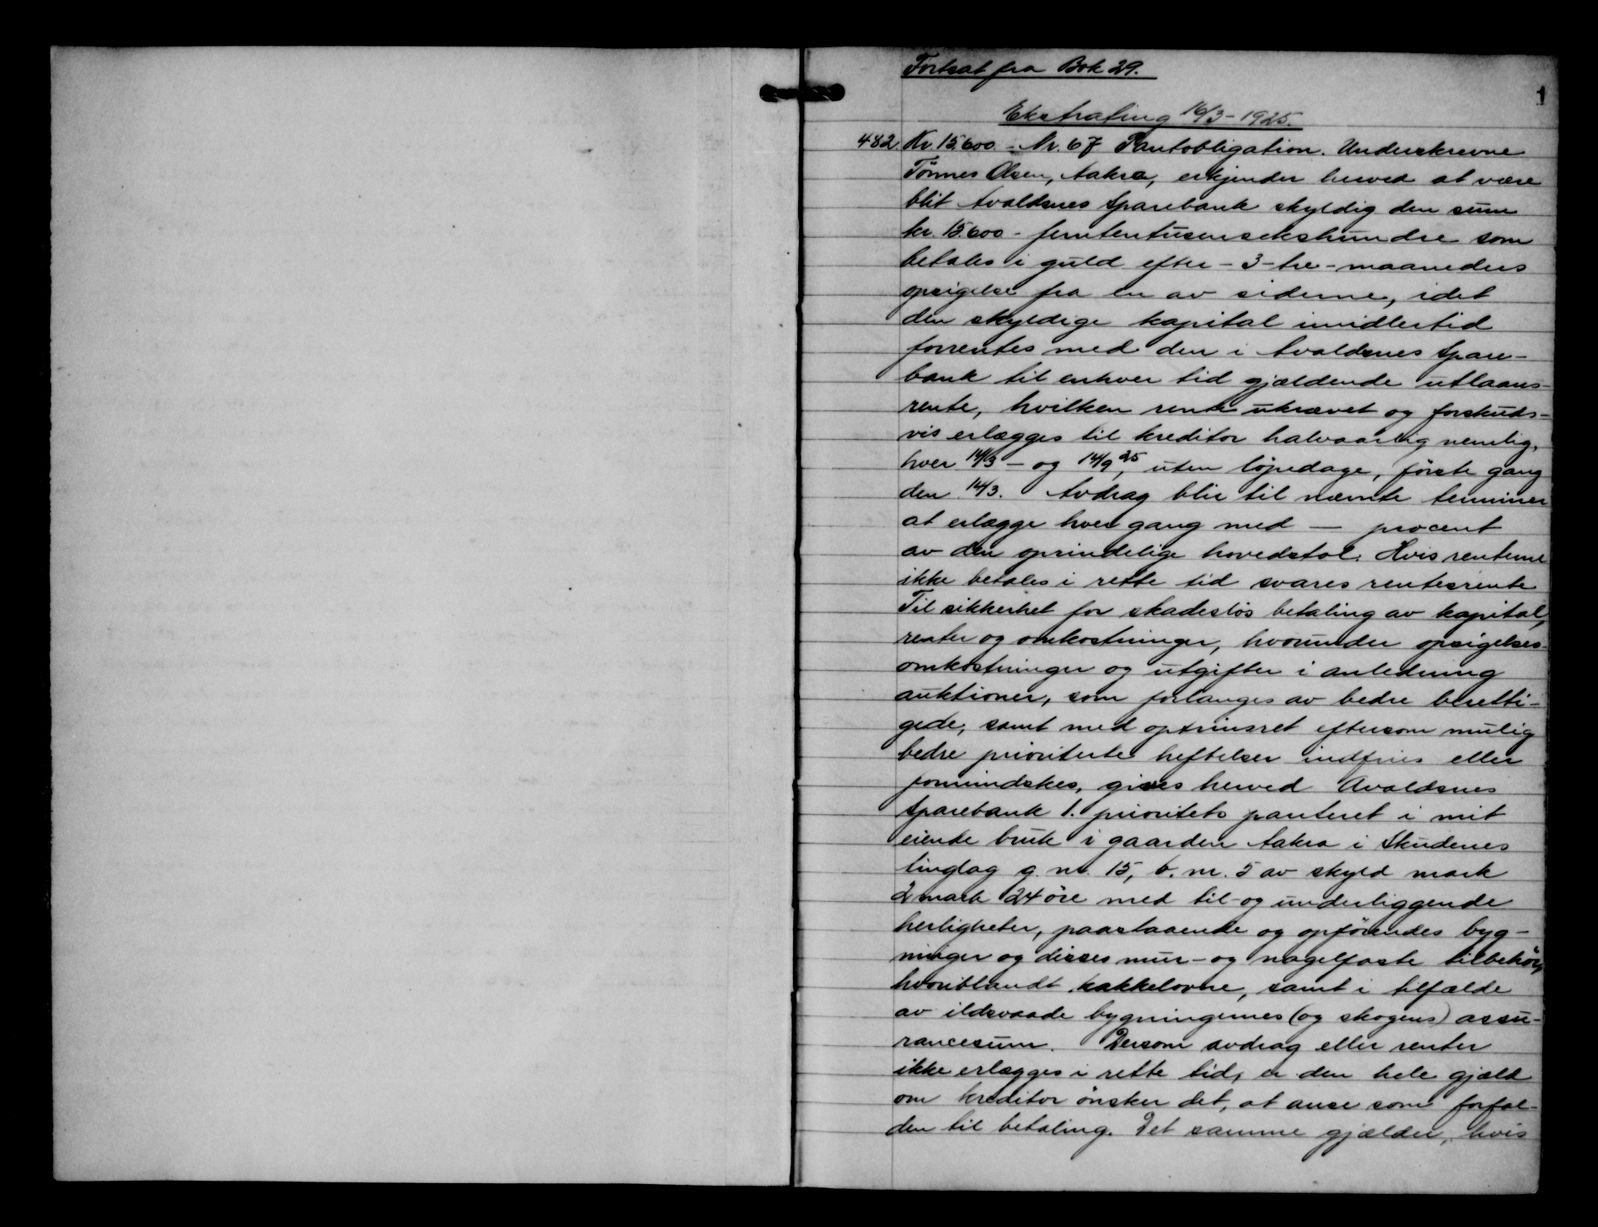 1
Fortsat fra Bok 29.
Ekstrating 16/3 - 1925.
482 Kr. 15.600 - Nr. 67 Pantobligation. Underskrevne
Tönnes Olsen, Aakra, erkjender herved at være
blit Avaldsnes Sparebank skyldig den sum
kr. 15.600 - femtentusensekshundre som
betales i guld efter - 3 - tre - maaneders
opsigelse fra en av siderne, idet
den skyldige kapital imidlertid
forrentes med den i Avaldsnes Spare-
bank til enhver tid gjældende utlaans-
rente, hvilken rente ukrævet og forskuds-
vis erlægges til kreditor halvaarlig nemlig,
hver 14/3 - og 14/9 25, uten löpedage, förste gang
den 14/3. Avdrag blir til nævnte terminer
at erlægge hver gang med — procent
av den oprindelige hovedstol. Hvis renterne
ikke betales i rette tid svares rentesrente
Til sikkerhet for skadeslös betaling av kapital,
renter og omkostninger, hvorunder opsigelses-
omkostninger og utgifter i anledning
auktioner, som forlanges av bedre beretti-
gede, samt med optrinsret eftersom mulig
bedre prioriterte heftelser indfries eller
formindskes, gives herved Avaldsnes
Sparebank 1. prioritets panteret i mit
eiende bruk i gaarden Aakra i Skudenes
tinglag g. nr. 15, b. nr. 5 av skyld mark
2 mark 24 öre med til- og underliggende
herligheter, paastaaende og opförendes byg-
ninger og disses mur- og nagelfaste tilbehör,
hvoriblandt kakkelovne, samt i tilfælde
av ildsvaade bygningernes (og skogens) assu-
rancesum. Dersom avdrag eller renter
ikke erlægges i rette tid, er den hele gjæld
om kreditor önsker det, at anse som forfal-
den til betaling. Det samme gjælder, hvis